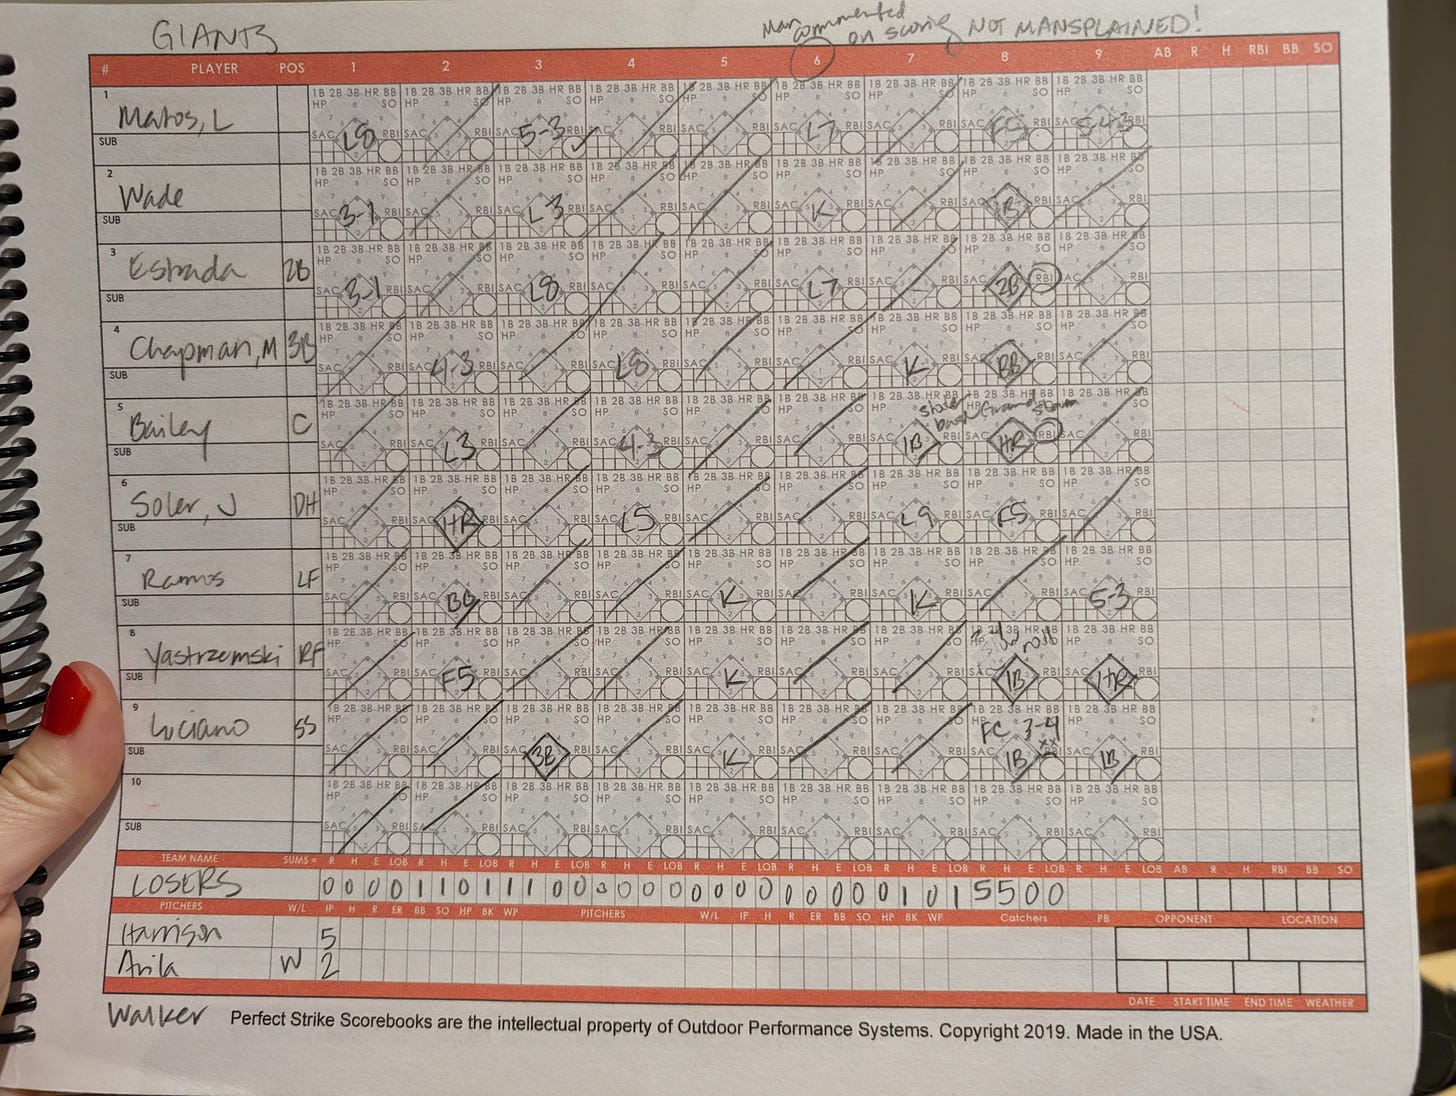 GIANTS
Man commented on scoring NOT MANSPLAINED!
# PLAYER POS 1 2 3 4 5 6 7 8 9 AB R H RBI BB SO
1 Matos, L L8 5-3 L7 F5 5-4-3
SUB
2 Wade 3-1 L3 K 1B
SUB
3 Estrada 2B 3-1 L8 L7 2B
SUB
4 Chapman, M 3B 4-3 L8 K BB
SUB
5 Bailey C L3 4-3 1B HR Grand Slam
SUB
6 Soler, J DH HR L5 L9 F5
SUB
7 Ramos LF BB K K 5-3
SUB
8 Yastrzemski RF F5 K 1B HR
SUB
9 Luciano SS 3B K FC 3-4 1B 1B
SUB
10
SUB
TEAM NAME SUMS = R H E LOB R H E LOB R H E LOB R H E LOB R H E LOB R H E LOB R H E LOB R H E LOB R H E LOB AB R H RBI BB SO
LOSERS 0 0 0 0 1 1 0 1 1 1 0 0 0 0 0 0 0 0 0 0 0 0 0 0 0 1 0 1 5 5 0 0
PITCHERS W/L IP H R ER BB SO HP BK WP PITCHERS W/L IP H R ER BB SO HP BK WP Catchers PB OPPONENT LOCATION
Harrison 5
Avila W 2
DATE START TIME END TIME WEATHER
Walker
Perfect Strike Scorebooks are the intellectual property of Outdoor Performance Systems. Copyright 2019. Made in the USA.